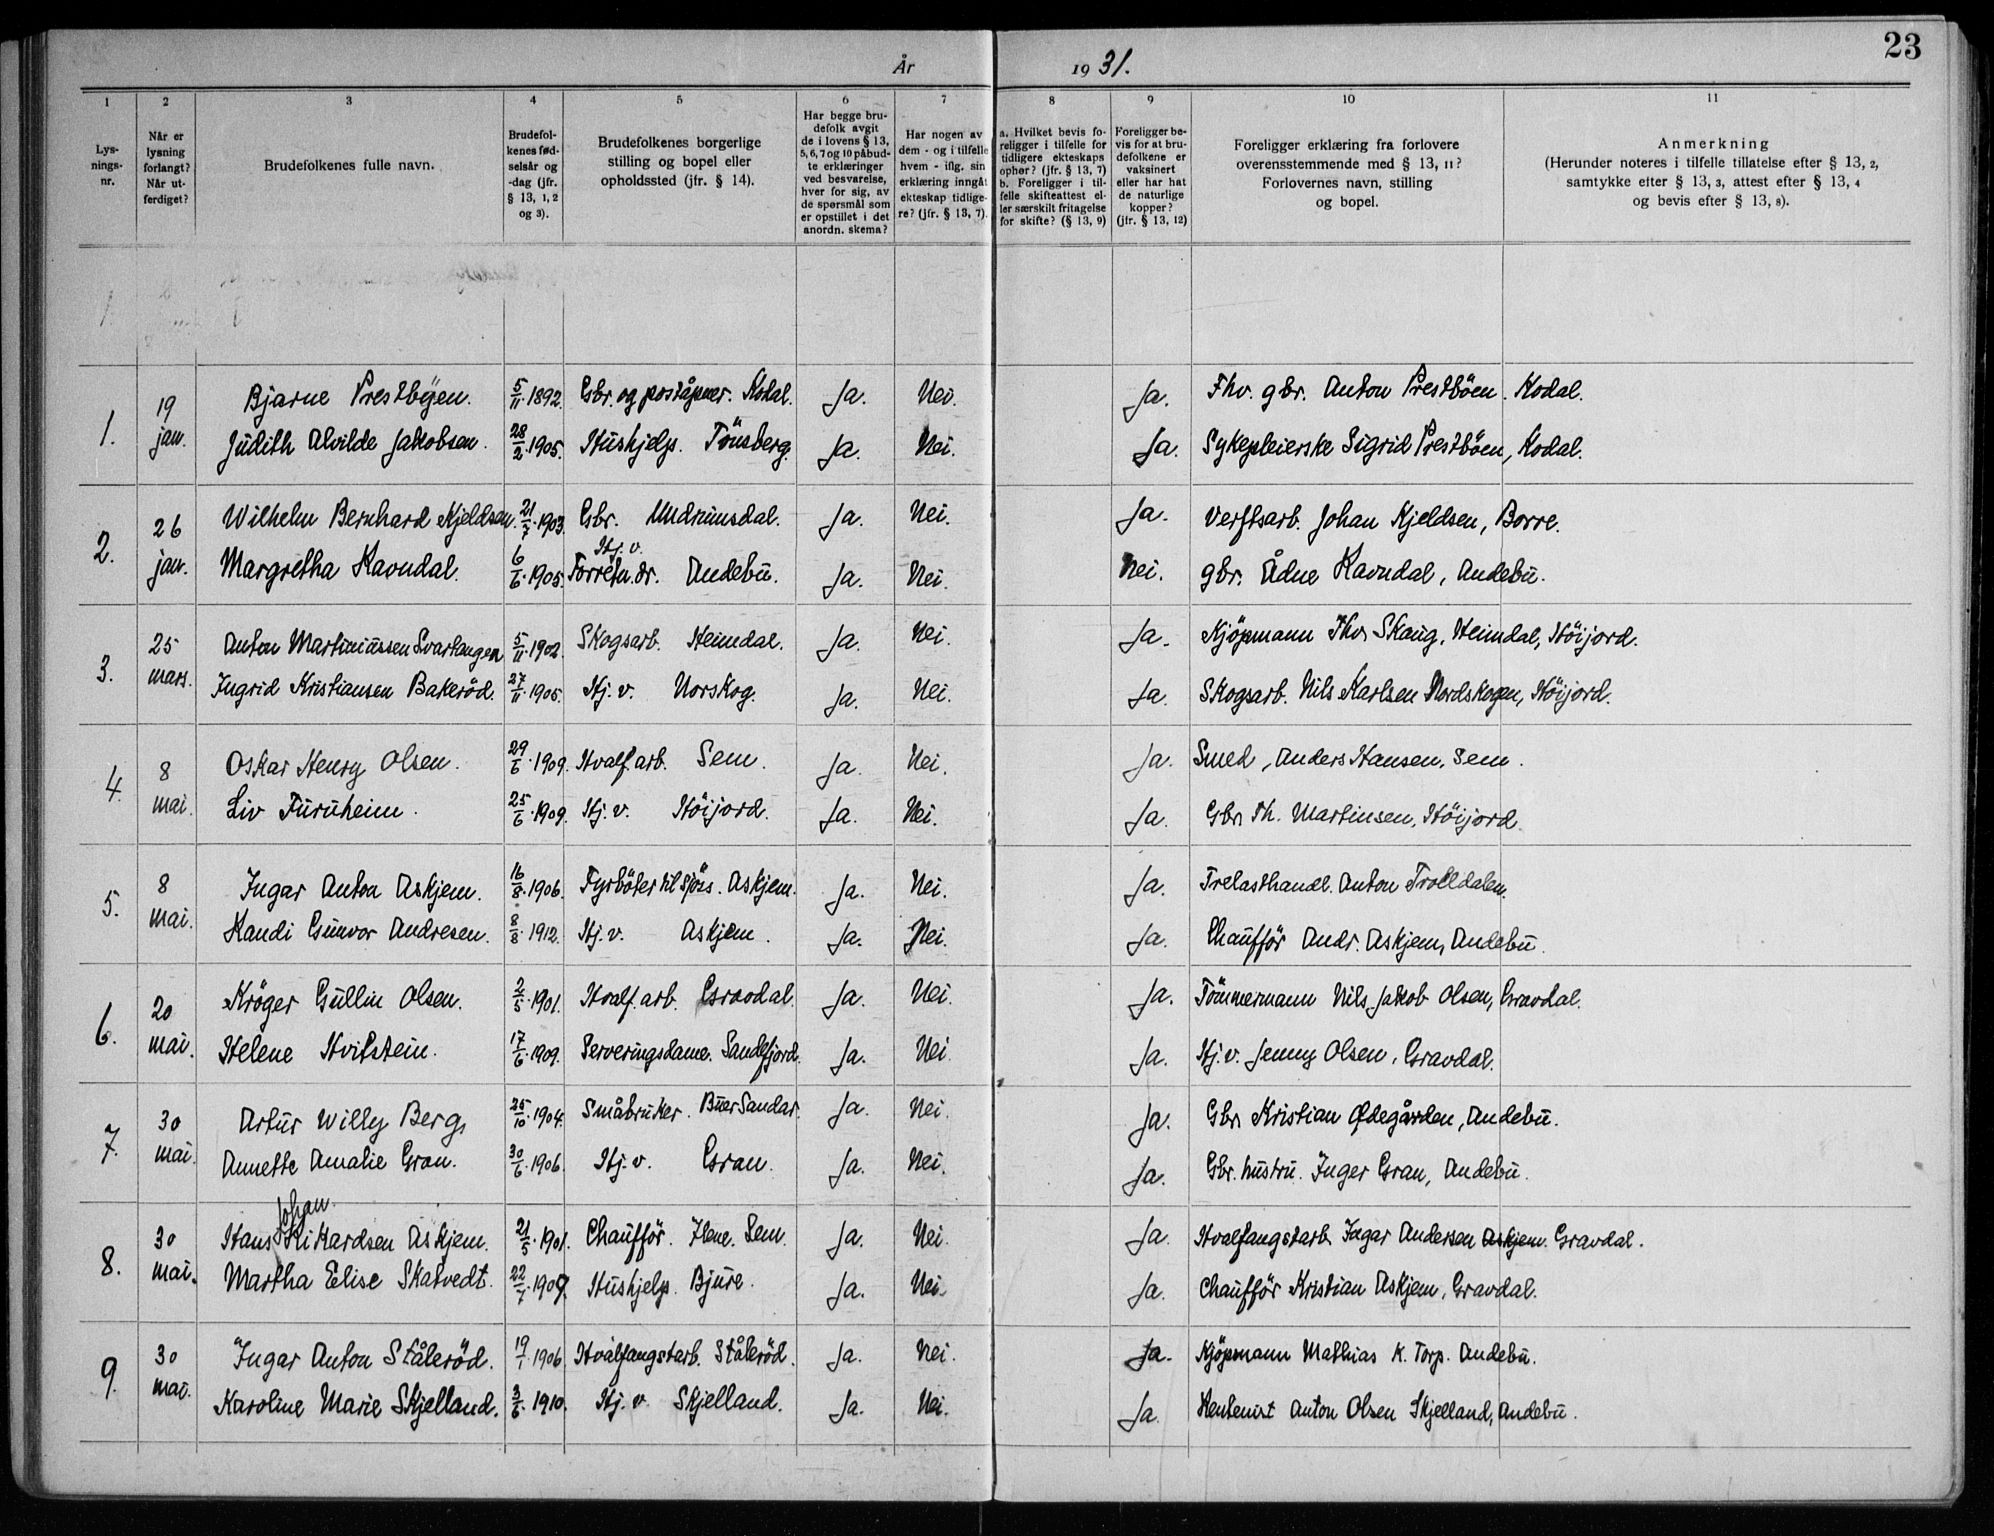 23
År 1931.
1 2 3 4 5 6 7 8 9 10 11
Lys-
nings-
nr.
Når er
lysning
forlangt?
Når ut-
ferdiget?
Brudefolkenes fulle navn.
Brudefol-
kenes fød-
selsår og
-dag (jfr.
§ 13, 1, 2
og 3).
Brudefolkenes borgerlige
stilling og bopel eller
opholdssted (jfr. § 14).
Har begge bru-
defolk avgit
de i lovens § 13,
5, 6, 7 og 10 påbud-
te erklæringer
ved besvarelse,
hver for sig, av
de spørsmål som
er opstillet i det
anordn. skema?
Har nogen av
dem - og i tilfelle
hvem - iflg. sin
erklæring inngåt
ekteskap tidlige-
re? (jfr. § 13, 7).
a. Hvilket bevis fo-
religger i tilfelle for
tidligere ekteskaps
ophør? (jfr. § 13, 7)
b. Foreligger i til-
felle skifteattest el-
ler særskilt fritagelse
for skifte? (§ 13, 9)
Foreligger be-
vis for at bru-
defolkene er
vaksinert
eller har hat
de naturlige
kopper?
(jfr. § 13, 12)
Foreligger erklæring fra forlovere
overensstemmende med § 13, 11?
Forlovernes navn, stilling
og bopel.
Anmerkning
(Herunder noteres i tilfelle tillatelse efter § 13, 2,
samtykke efter § 13, 3, attest efter § 13, 4
og bevis efter § 13, 8).
1. 19 jan. Bjarne Prestbyen. 5/11 1892. Gbr. og poståpner. Kodal. Ja. Nei. Ja. Fhv. gbr. Anton Prestböen. Kodal.
Judith Alvilde Jakobsen. 28/2 1905. Hushjelp. Tönsberg. Ja. Nei. Ja. Sykepleierske Sigrid Prestböen, Kodal.
2. 26 jan. Wilhelm Bernhard Kjeldsen. 21/7 1903. Gbr. Undrumsdal. Ja. Nei. Ja. Verftsarb. Johan Kjeldsen, Borre.
Hj. v.
Margretha Kavndal. 6/6 1905. Forretn.dr. Andebu. Ja. Nei. Nei. gbr. Ådne Kavndal, Andebu.
3. 25 mars. Anton Martiniussen Svartangen 5/11 1902. Skogsarb. Heimdal. Ja. Nei. Ja. Kjöpmann Thv. Skaug, Heimdal, Höijord.
Ingrid Kristiansen Bakeröd. 27/11 1905. Hj. v. Norskog. Ja. Nei. Ja. Skogsarb. Nils Karlsen Nordskogen, Höijord.
4. 8 mai. Oskar Henry Olsen. 29/6 1909. Hvalf.arb. Sem. Ja. Nei. Ja. Smed, Anders Hansen, Sem.
Liv Furuheim. 25/6 1909. Hj. v. Höijord. Ja. Nei. Ja. Gbr. Th. Martinsen, Höijord
5. 8 mai. Ingar Anton Askjem. 16/8 1906. Fyrböter til sjöis. Askjem. Ja. Nei. Ja. Trelasthandl. Anton Trolldalen.
Kandi Gunvor Andresen. 8/8 1912. Hj. v. Askjem. Ja. Nei. Ja. Chaufför Andr. Askjem, Andebu.
6. 20 mai. Kröger Gullin Olsen. 2/5 1901. Hvalf.arb. Gravdal. Ja. Nei. Ja. Tömmermann Nils Jakob Olsen, Gravdal.
Helene Hvitstein. 17/6 1909. Serveringsdame. Sandefjord. Ja. Nei. Ja. Hj. v. Jenny Olsen, Gravdal.
7. 30 mai. Artur Willy Berg, 25/10 1904. Småbruker. Buer Sandar. Ja. Nei. Ja. Gbr. Kristian Ødegården, Andebu.
Annette Amalie Gran. 30/6 1906. Hj. v. Gran. Ja. Nei. Ja. Gbr. hustru. Inger Gran, Andebu.
Johan
8. 30 mai. Hans Rikardsen Askjem. 21/5 1901. Chaufför. Ilene. Sem. Ja. Nei. Ja. Hvalfangstarb. Ingar Andersen Askjem. Gravdal.
Martha Elise Skatvedt. 22/7 1909. Hushjelp. Bjure. Ja. Nei. Ja. Chaufför Kristian Askjem, Gravdal.
9. 30 mai. Ingar Anton Ståleröd. 19/1 1906. Hvalfangstarb. Ståleröd. Ja. Nei. Ja. Kjöpmann Mathias K. Torp. Andebu.
Karoline Marie Skjelland. 3/6 1910. Hj. v. Skjelland. Ja. Nei. Ja. Anton Olsen Skjelland, Andebu.